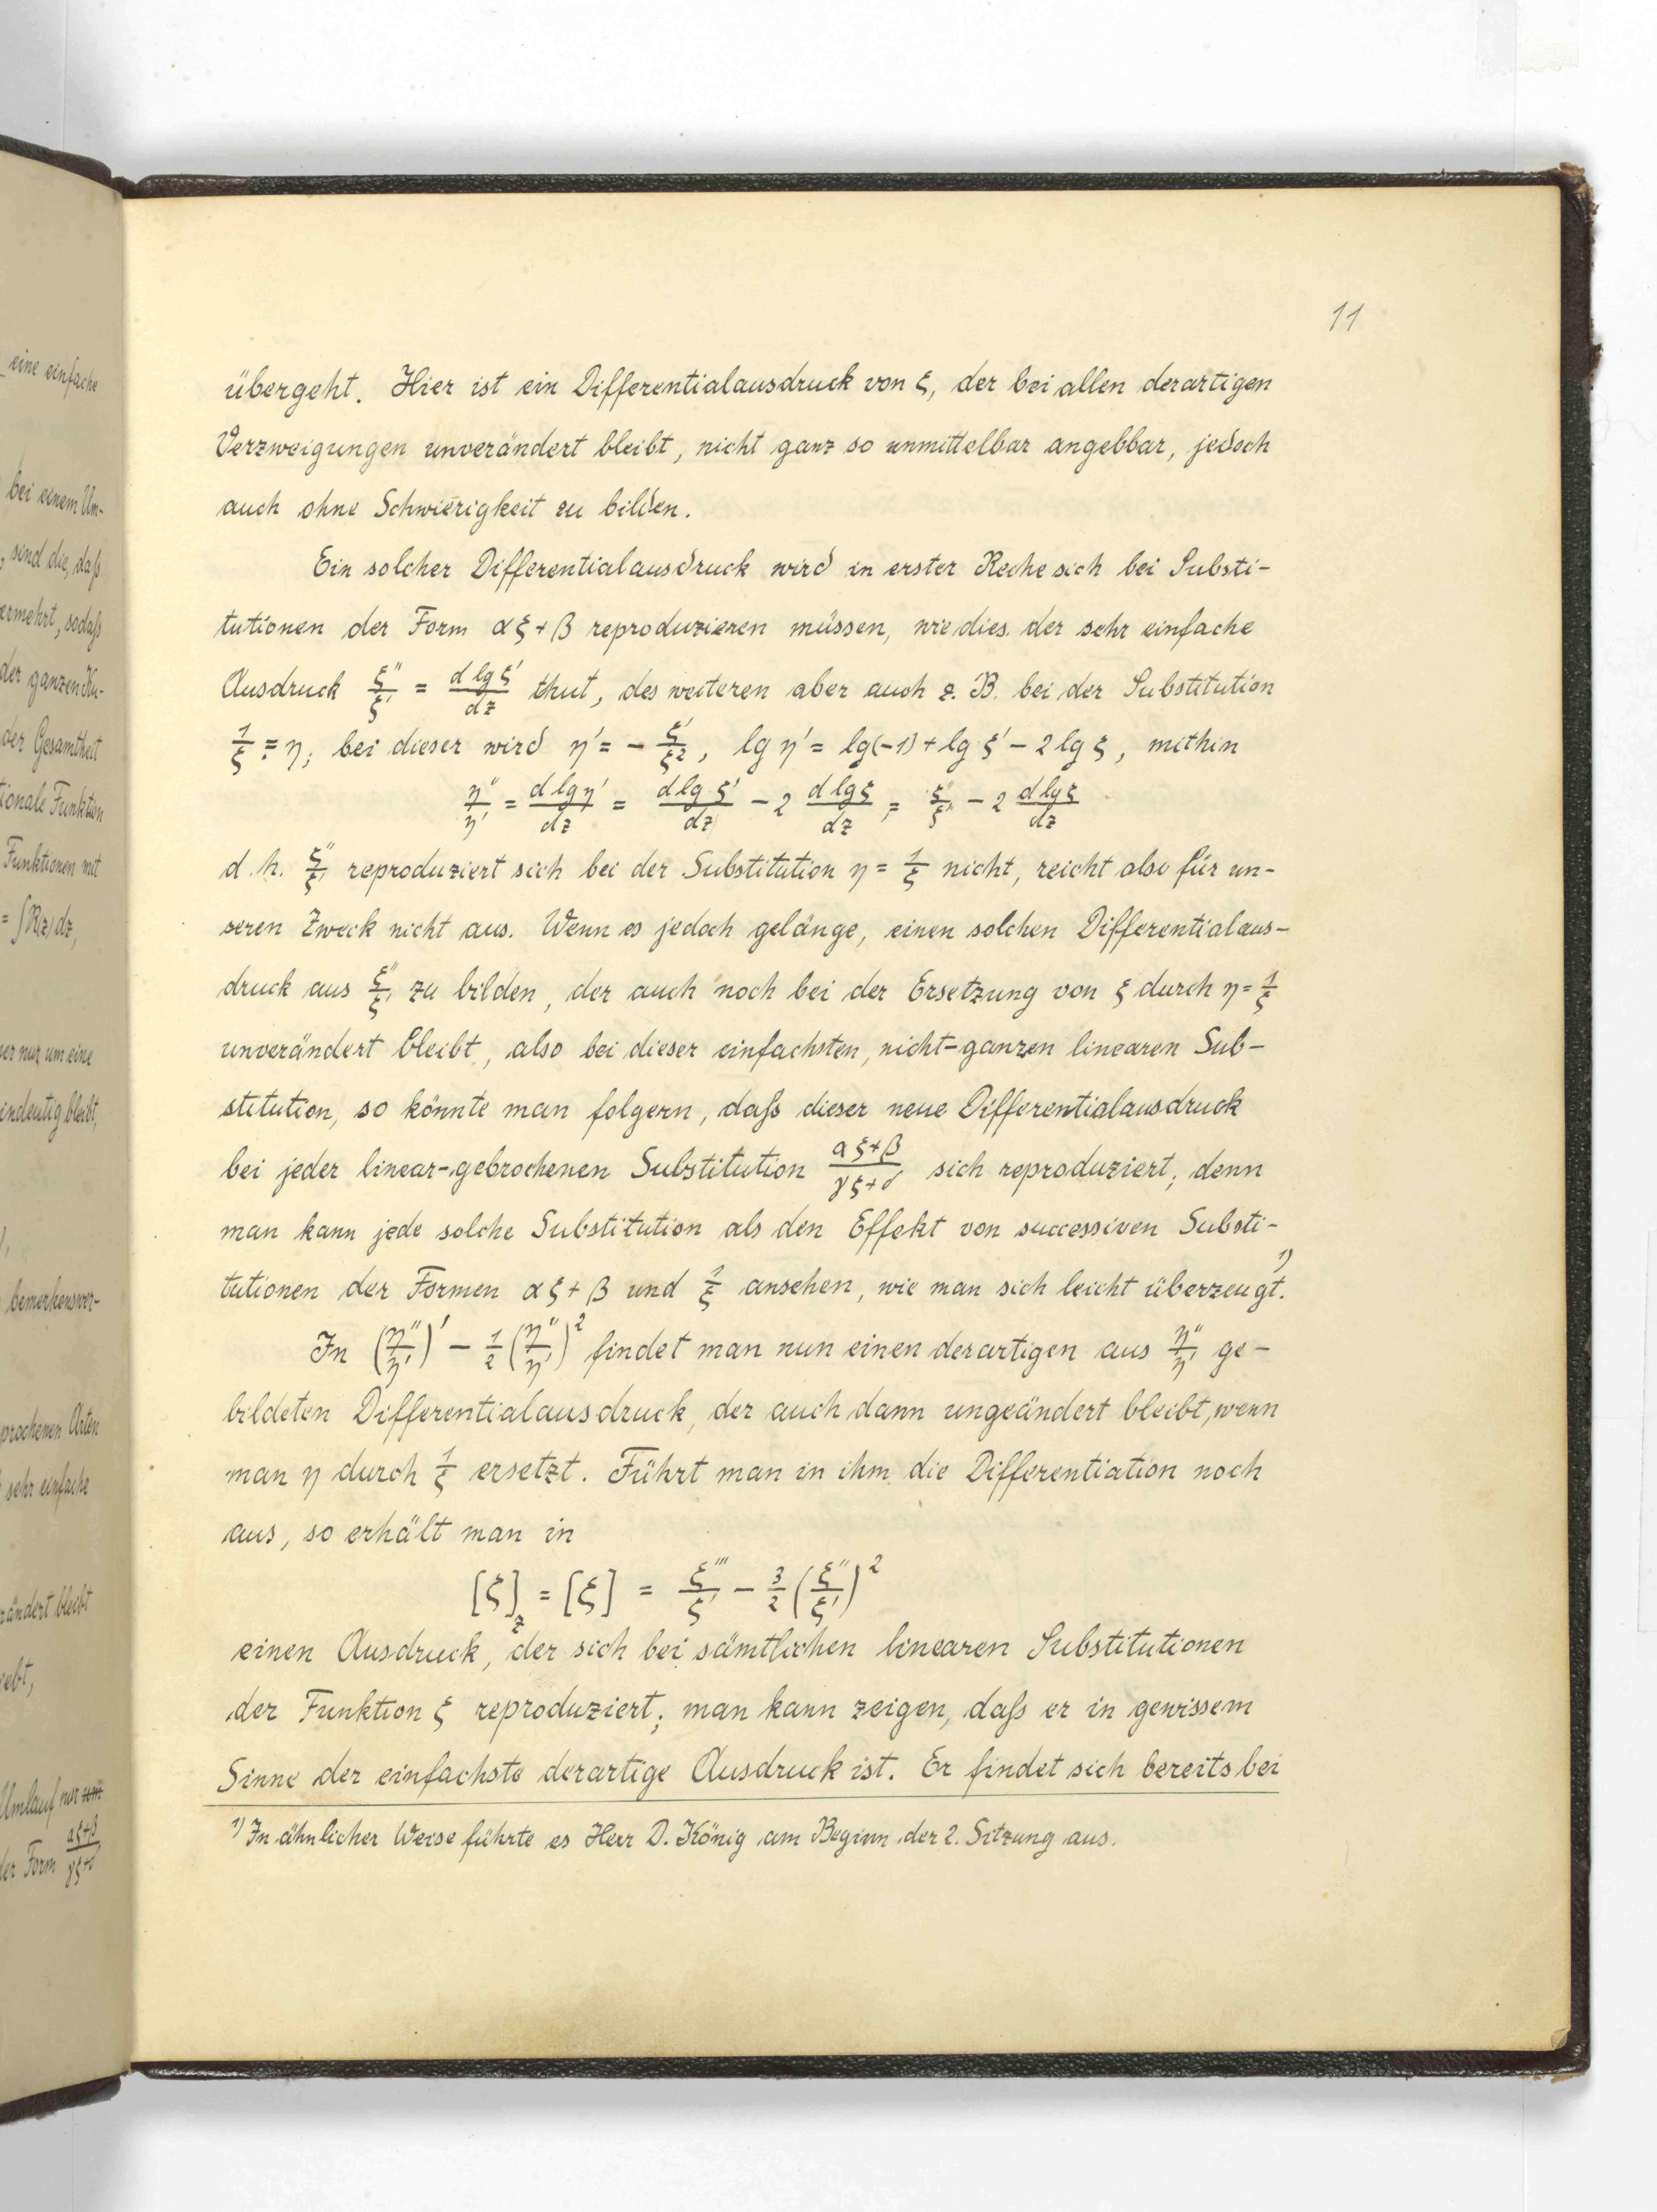 11
übergeht. Hier ist ein Differentialausdruck von ξ, der bei allen derartigen
Verzweigungen unverändert bleibt, nicht ganz so unmittelbar angebbar, jedoch
auch ohne Schwierigkeit zu bilden.
Ein solcher Differentialausdruck wird in erster Reihe sich bei Substi-
tutionen der Form αξ+β reproduzieren müssen, wie dies der sehr einfache
Ausdruck ξ''/ξ' = d lg ξ'/dz thut, des weiteren aber auch z. B. bei der Substitution
1/ξ = η; bei dieser wird η' = - ξ'/ξ², lg η' = lg(-1) + lg ξ' - 2 lg ξ, mithin
η''/η' = d lg η'/dz = d lg ξ'/dz - 2 d lg ξ/dz = ξ''/ξ' - 2 d lg ξ/dz
d. h. ξ''/ξ' reproduziert sich bei der Substitution η = 1/ξ nicht, reicht also für un-
seren Zweck nicht aus. Wenn es jedoch gelänge, einen solchen Differentialaus-
druck aus ξ''/ξ' zu bilden, der auch noch bei der Ersetzung von ξ durch η = 1/ξ
unverändert bleibt, also bei dieser einfachsten, nicht-ganzen linearen Sub-
stitution, so könnte man folgern, daß dieser neue Differentialausdruck
bei jeder linear-gebrochenen Substitution (αξ+β)/(γξ+δ) sich reproduziert; denn
man kann jede solche Substitution als den Effekt von successiven Substi-
tutionen der Formen αξ+β und 1/ξ ansehen, wie man sich leicht überzeugt.¹⁾
In (η''/η')' - 1/2 (η''/η')² findet man nun einen derartigen aus η''/η' ge-
bildeten Differentialausdruck, der auch dann ungeändert bleibt, wenn
man η durch 1/ξ ersetzt. Führt man in ihm die Differentiation noch
aus, so erhält man in
[ξ]_z = [ξ] = ξ'''/ξ' - 3/2 (ξ''/ξ')²
einen Ausdruck, der sich bei sämtlichen linearen Substitutionen
der Funktion ξ reproduziert; man kann zeigen, daß er in gewissem
Sinne der einfachste derartige Ausdruck ist. Er findet sich bereits bei
¹⁾ In ähnlicher Weise führte es Herr D. König am Beginn der 2. Sitzung aus.
eine einfache
bei einem Um-
sind die, daß
ermehrt, sodaß
der ganzen
der Gesamtheit
tionale Funktion
Funktionen mit
= ∫R(z)dz,
er nur um eine
indeutig bleibt,
bemerkensver-
prochenen Arten
sehr einfache
rändert bleibt
ebt,
Umlauf nur um
der Form (αξ+β)/(γξ+δ)